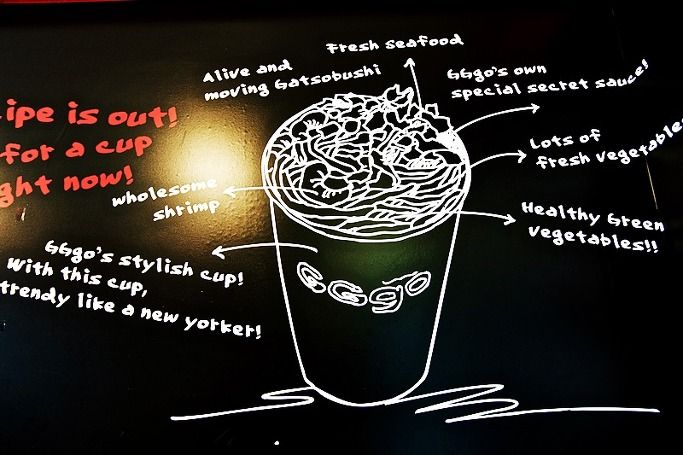 Fresh seafood
Alive and
moving Gatsobushi
GGgo's own
special secret sauce!
ipe is out!
for a cup
ght now!
Lots of
fresh vegetables
wholesome
shrimp
Healthy Green
vegetables!!
GGgo's stylish cup!
With this cup,
trendy like a new yorker!
GGgo